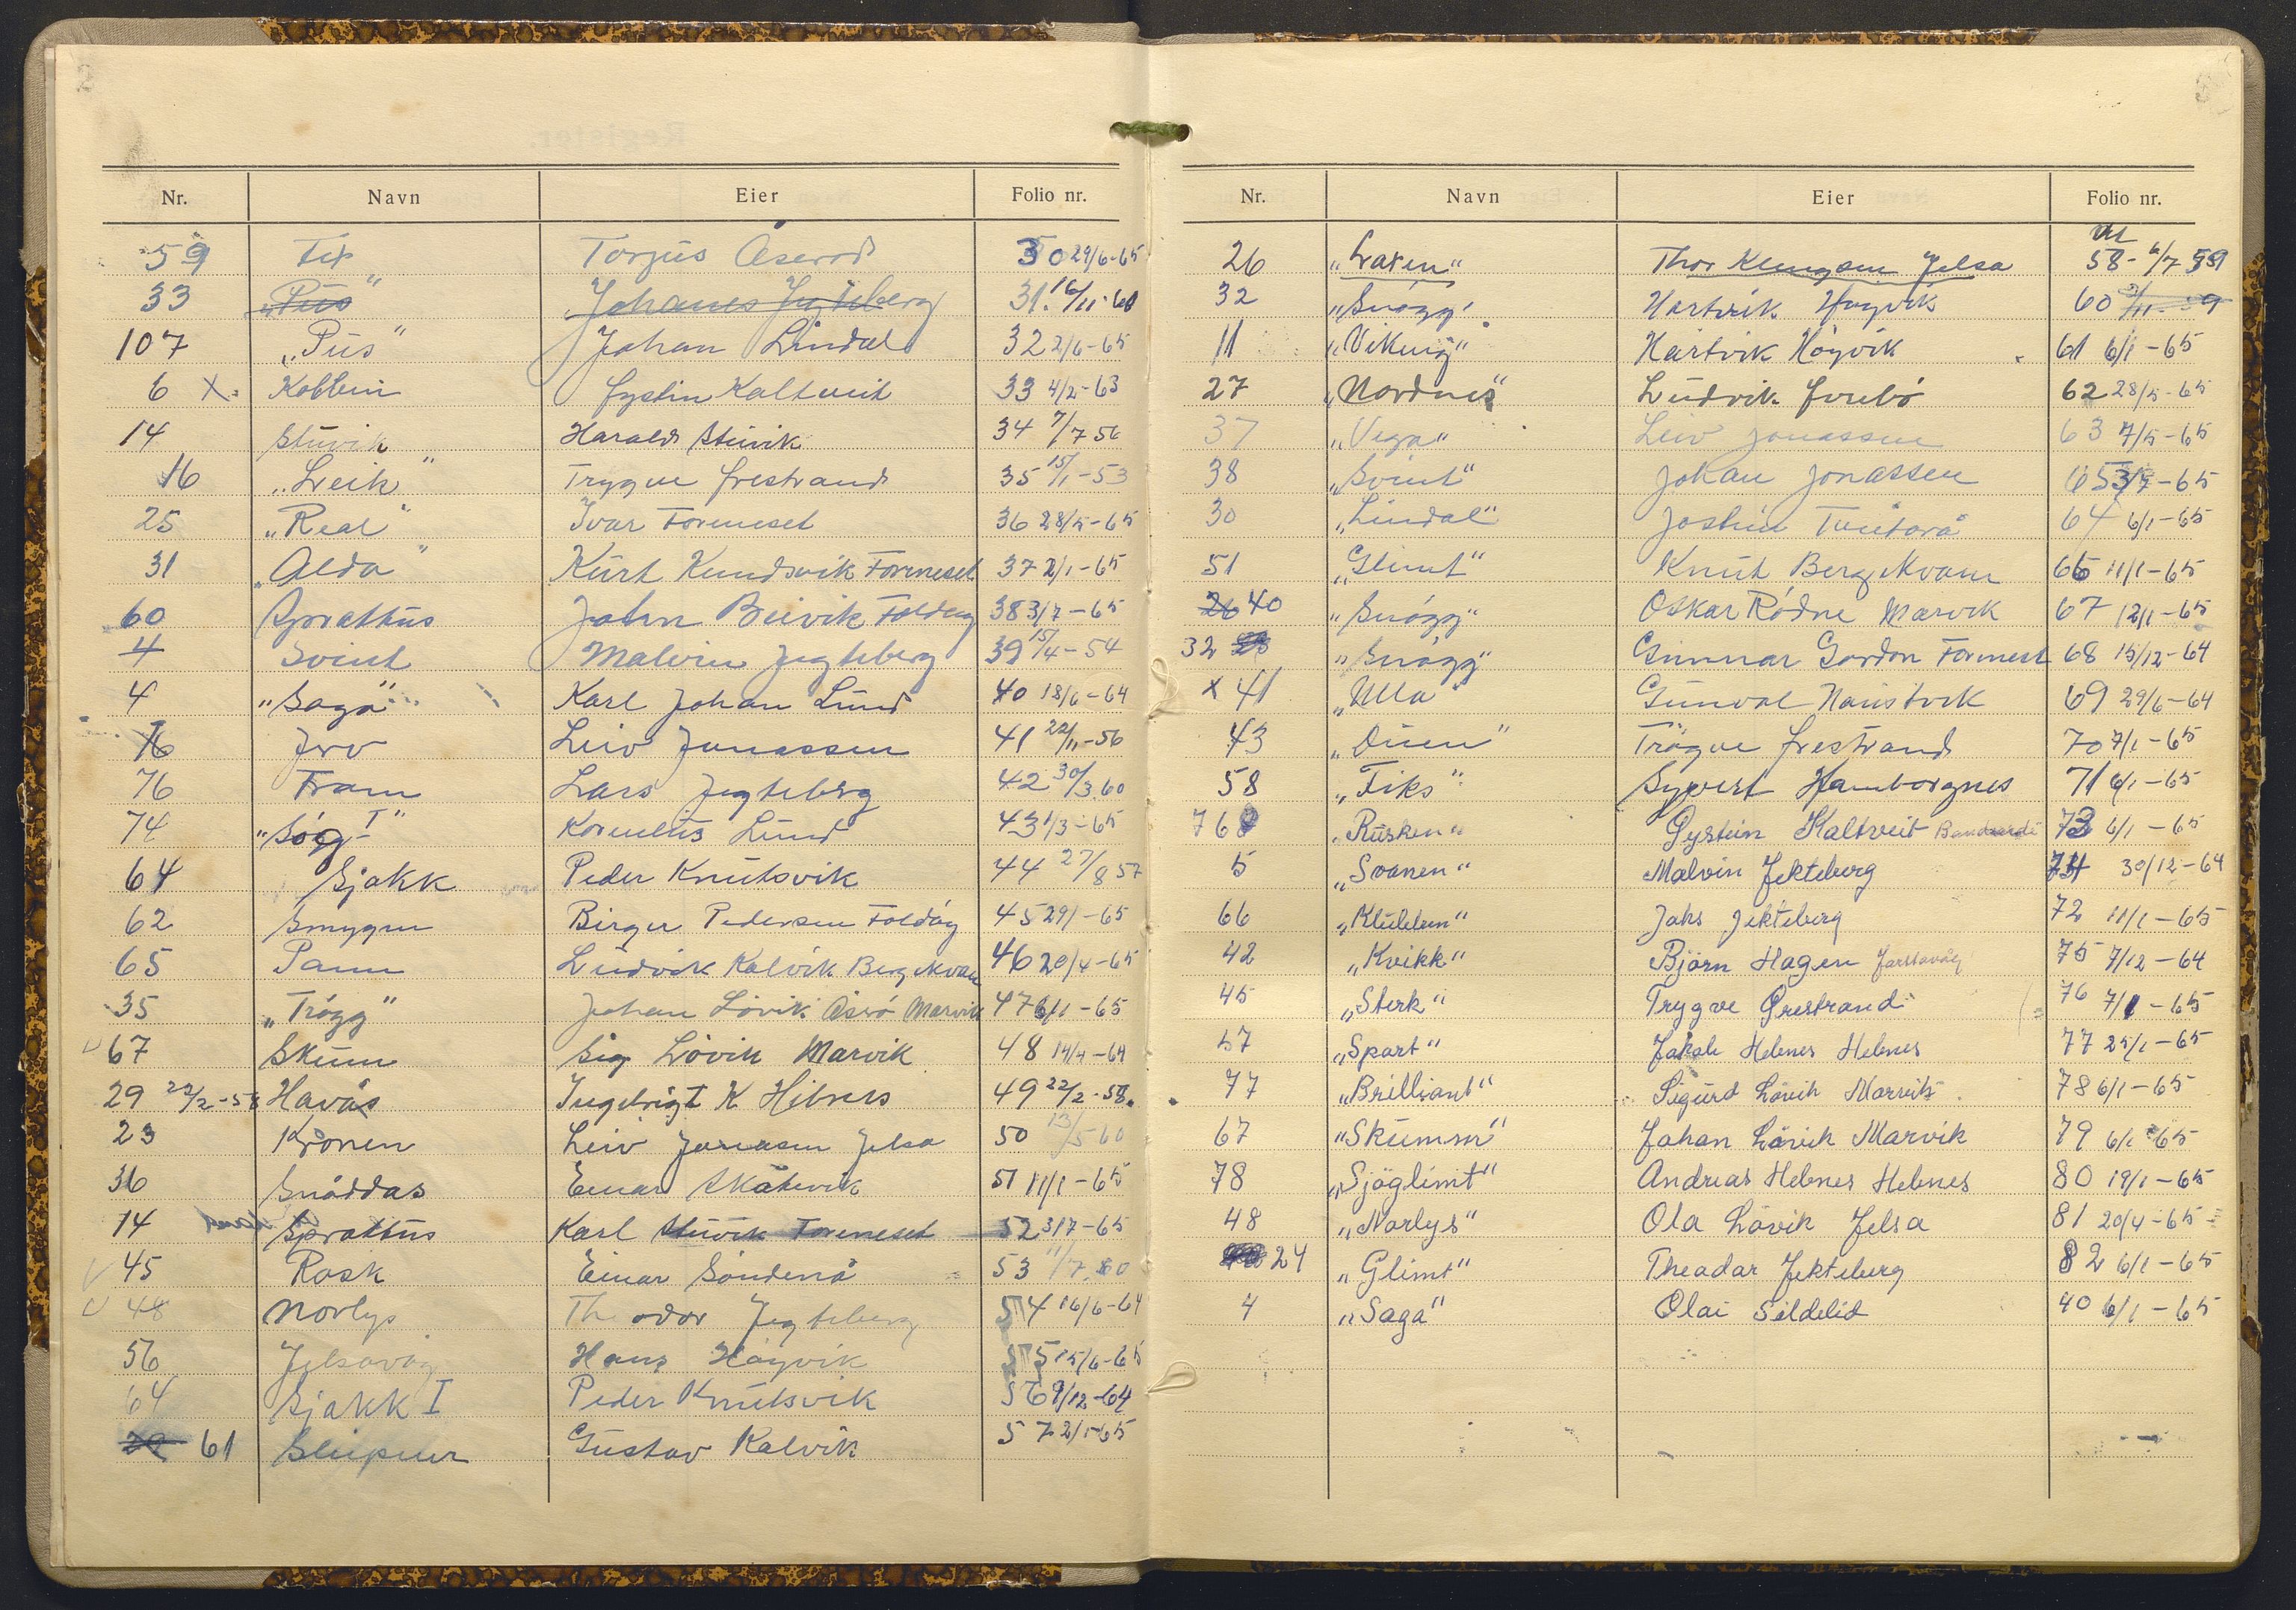 Nr. Navn Eier Folio nr.
59 Fix Torjus Åserød 30 29/6-65
33 „Pus“ Johanes Jegteberg 31. 16/11-60
107 „Pus“ Johan Lindal 32 2/6-65
6 X Kobbin Øystin Kaltveit 33 4/2-63
14 Stuvik Harald Stuvik 34 7/7 56
16 „Leik“ Trygve Ørestrand 35 15/1-53
25 „Real“ Ivar Foreneset 36 28/5-65
31 „Alda“ Kurt Knudsvik Foreneset 37 2/1-65
60 Sprattus John Beivik Foldøy 38 3/7-65
4 Svint Malvin Jegteberg 39 15/4-54
4 „Saga“ Karl Johan Lund 40 18/6-64
16 Jrv Leiv Jonassen 41 22/11-56
76 Fram Lars Jegteberg 42 30/3.60
74 „Søg I“ Kornelius Lund 43 1/3-65
64 Sjakk Peder Knutsvik 44 27/8 57
62 Smygen Birger Pedersen Foldøy 45 29/1-65
65 Pann Ludvik Kalvik Berg Kvam 46 20/4-65
35 „Trögg“ Johan Lövik Åsvö Marvik 47 6/1-65
67 Skum Sig Lövik Marvik 48 14/4-64
29 22/2-58 Havås Ingebrigt K Hebnes 49 22/2-58.
23 Kronen Leiv Jonasen Jelsa 50 13/5 60
36 Snåddas Einar Skåtevik 51 11/1-65
14 Sprattus Karl Stuvik Foreneset 52 3/7-65
45 Rask Einar Söndenå 53 11/7.60
48 Norlys Theodor Jegteberg 54 16/6-64
56 Jelsavåg Hans Høyvik 55 15/6-65
64 Sjakk I Peder Knutsvik 56 9/12-64
29 61 Sleipner Gustav Kalvik 57 2/1-65
Nr. Navn Eier Folio nr.
26 „Laxen“ Thor Klungsen Jelsa 58- 6/7 59
32 „Snøgg“ Hartvik Høyvik 60 2/11-59
11 „Viking“ Hartvik Høyvik 61 6/1-65
27 „Nordnes“ Ludvik Forebö 62 28/5-65
37 „Vega“ Leiv Jonassen 63 7/5-65
38 „Svint“ Johan Jonassen 65 3/7-65
30 „Lindal“ Jostein Tveitarå 64 6/1-65
51 „Glimt“ Knut Berg Kvam 66 11/1-65
26 40 „Snögg“ Oskar Rödne Marvik 67 12/1-65
32 „Snögg“ Gunnar Gordon Foreneset 68 15/12-64
X 41 „Ulla“ Gunval Naustvik 69 29/6-64
43 „Duen“ Trögve Ørestrand 70 7/1-65
58 „Fiks“ Syvert Hamborgnes 71 6/1-65
76 „Rusken“ Øystein Kaltveit 73 6/1-65
5 „Svanen“ Malvin Jekteberg 74 30/12-64
66 „Klubben“ Jahs Jekteberg 72 11/1-65
42 „Kvikk“ Bjørn Hagen 75 7/12-64
45 „Sterk“ Trygve Ørestrand 76 7/1-65
57 „Spart“ Jakob Hebnes Hebnes 77 25/1-65
77 „Brilliant“ Sigurd Løvik Marvik 78 6/1-65
67 „Skumm“ Johan Løvik Marvik 79 6/1-65
78 „Sjøglimt“ Andreas Hebnes Hebnes 80 19/1-65
48 „Norlys“ Ola Løvik Jelsa 81 20/4-65
24 „Glimt“ Theodor Jekteberg 82 6/1-65
4 „Saga“ Olai Sildelid 40 6/1-65